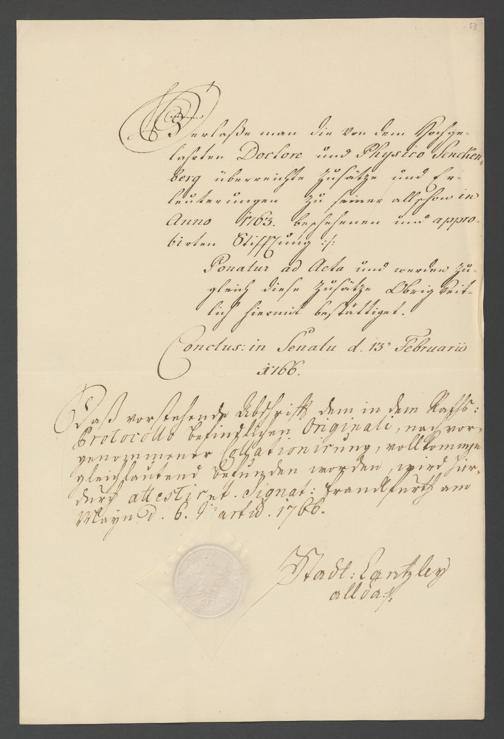 Verlaße man die von dem Hochge-
lahrten Doctore und Physico Sencken-
berg überreichte Zusätze und Er-
leuterungen zu seiner allschon in
Anno 1763. beschehenen und appro-
birten Stifftung :/:
Ponatur ad Acta und werden zu-
gleich diese Zusätze Obrigkeit-
lich hiermit bestättiget.
Conclus: in Senatu d. 13 Februarii
1766.
Daß vorstehende Abschrifft dem in dem Raths:
Protocollo befindlichen Originali, nach vor-
genommener Collationirung, vollkommen
gleichlautend befunden worden, wird hier-
durch attestiret. Signat: Franckfurth am
Mayn d. 6. Martii. 1766.
Stadt: Cantzley
allda.